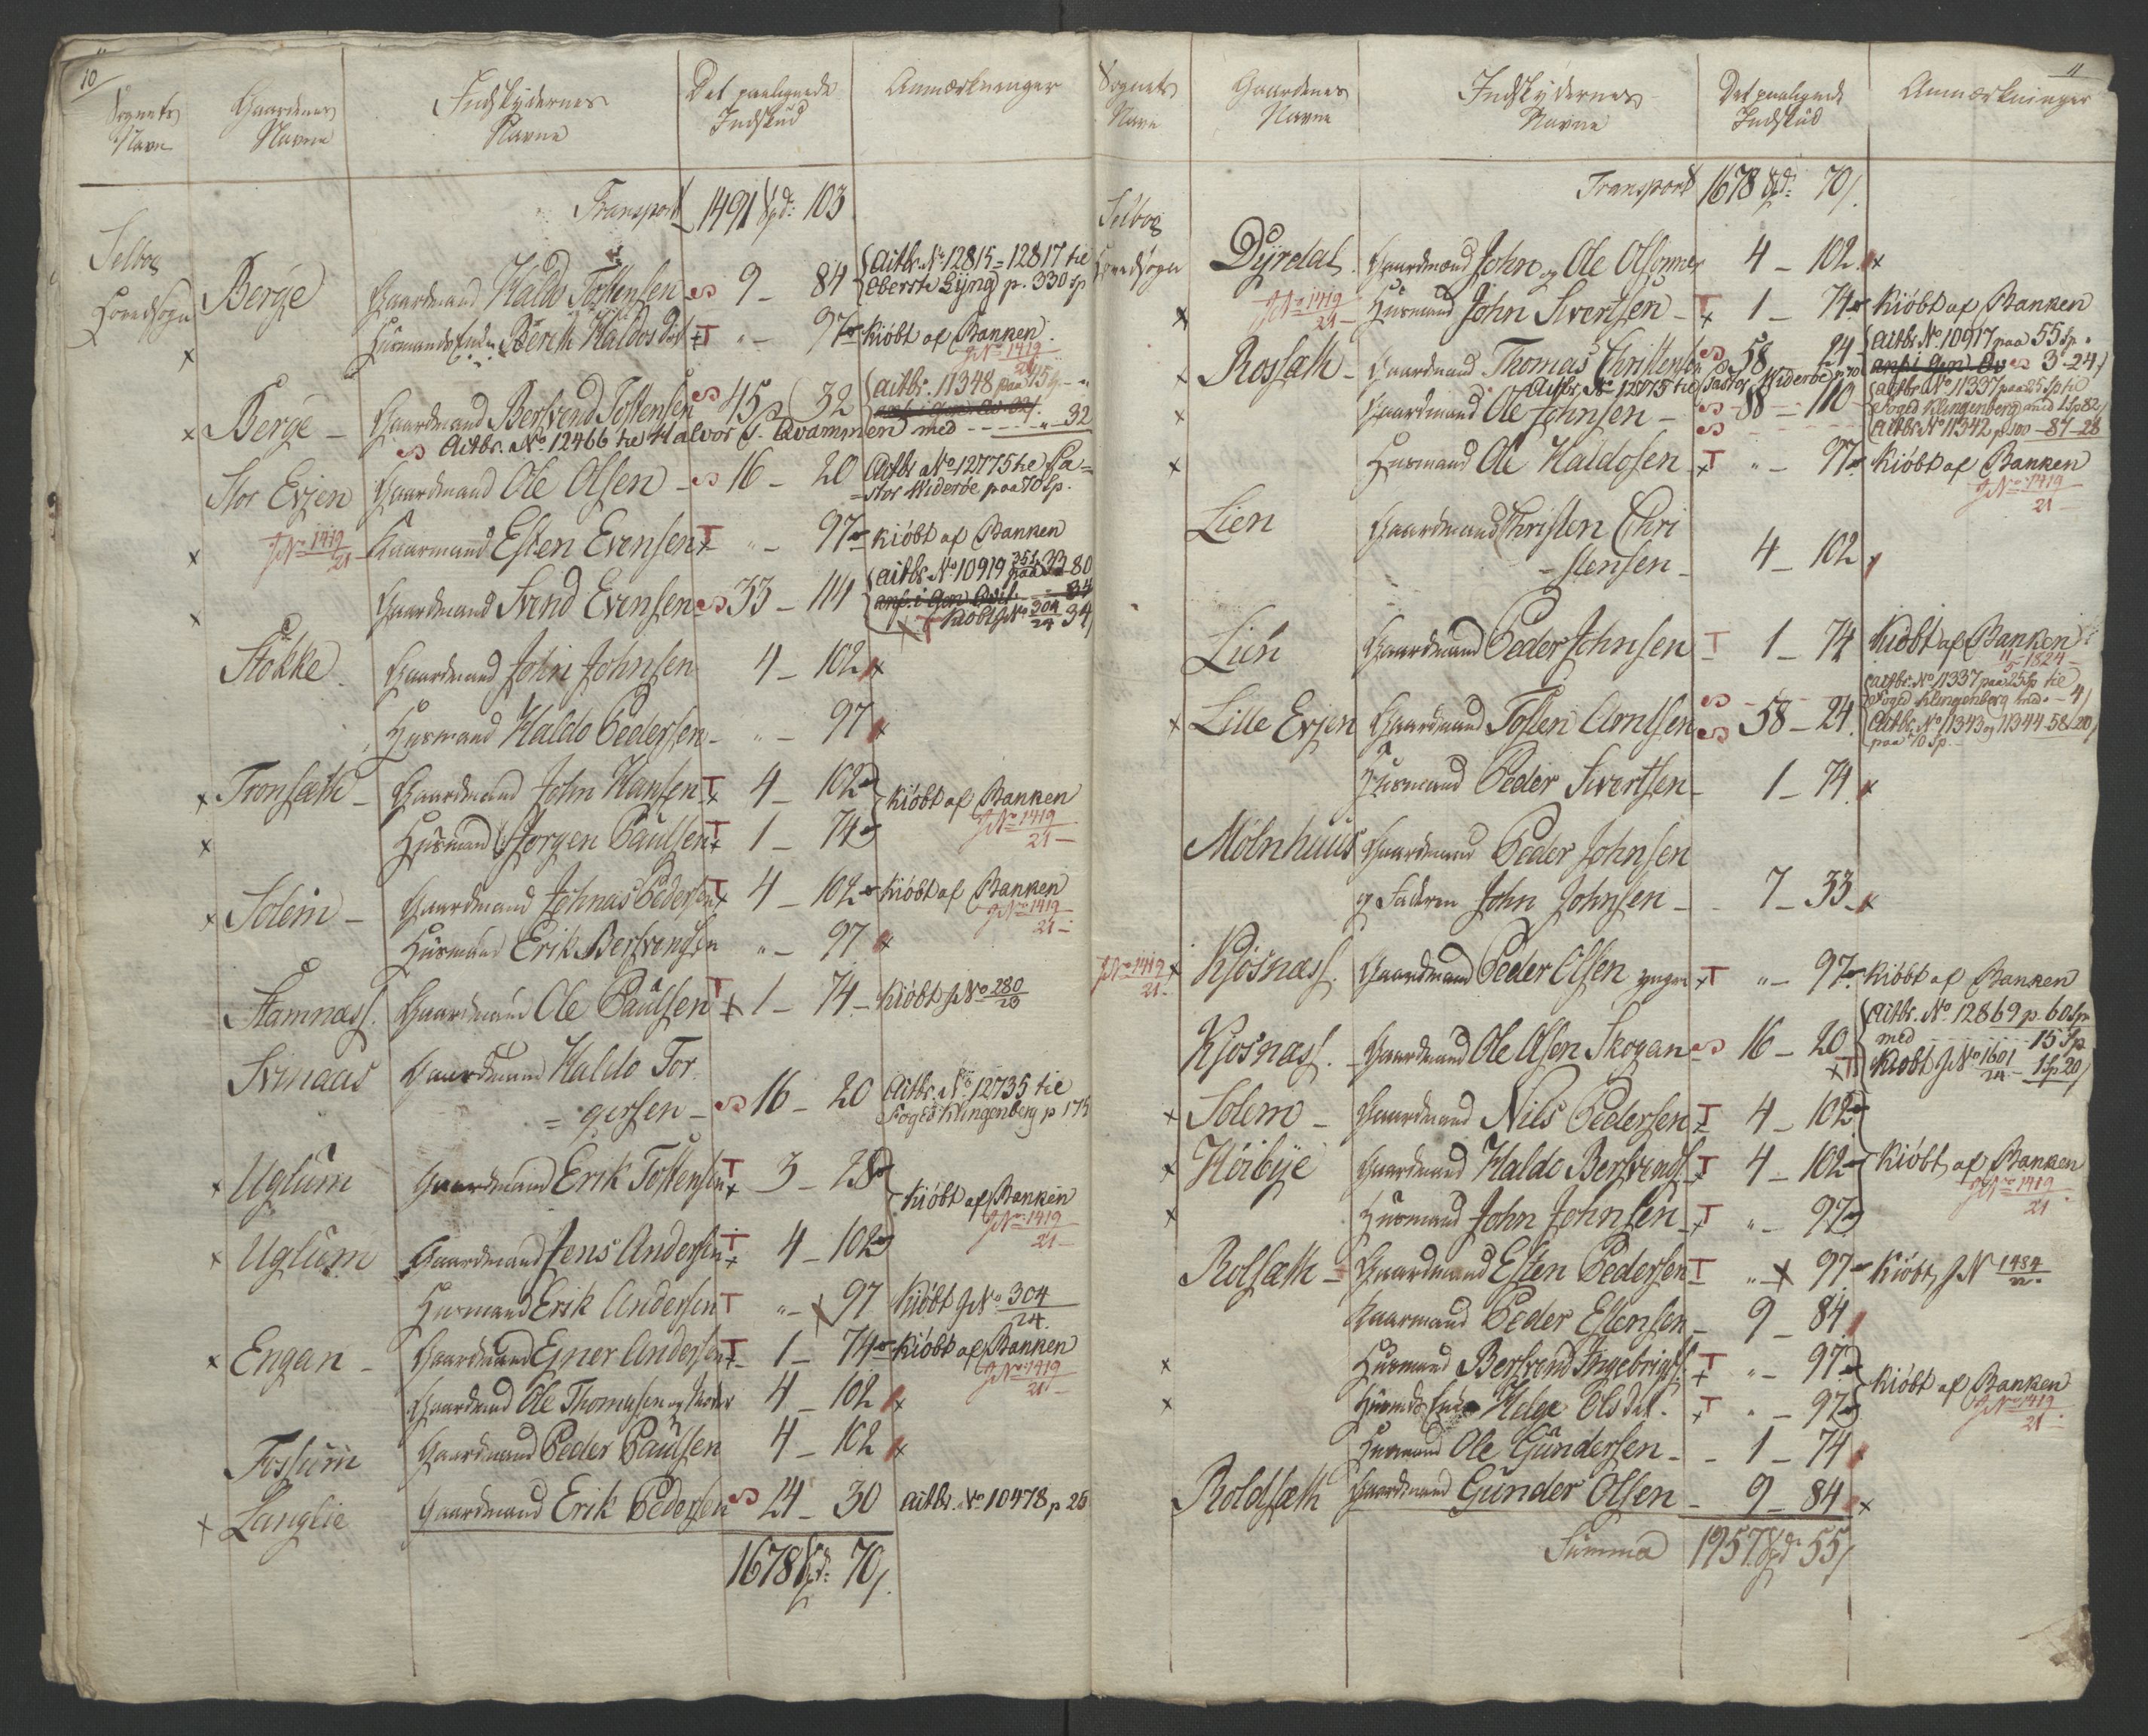 10
Sognets Navn
Gaardenes Navne
Indskydernes Navne
Det paalignede Indskud
Anmærkninger
Transport 1491 Spd: 103
Selboe Hovedsogn
Berge Gaardmand Haldo Tostensen 9 - 84 Actbr. No 12815 = 12817 til
Oberste Lÿng p. 330 sp
x Huusmands Enke Berith Haldos Dot T " - 97 Kiöbt af Banken
J No 1419/21
x Berge - Gaardmand Bersvend Tostensen 45 32 actbr. 11348 paa 45 Sp - "
anf. i Qvi. 32
Actbr. No 12466 til Halvor J. Qvammen med - - - - " - 32
Stor Evjen Gaardmand Ole Olsen - 16 - 20 Actbr No 12775 til Pa=
=stor Widerøe paa 70 Sp.
x J No 1419/21 Gaarmand Esten Evensen T " - 97 Kiöbt af Banken
x Gaardmand Svend Evensen 33 - 114 actbr. No 10919 paa 33 80
anf. i Gen Qvit. - 34
x T Kiöbt J No 304/24 34
Stokke Gaardmand John Johnsen 4 - 102 x
Huusmand Haldo Pedersen - " - 97 x
x Tronsæth - Gaardmand John Hansen T 4 - 102 Kiöbt af Banken
J No 1419/21
x Huusmand Jörgen Paulsen T 1 - 74
x Solem - Gaardmand Johnas Pedersen T 4 - 102 Kiöbt af Banken
J No 1419/21
Huusmand Erik Bersvendsen " - 97 x
Stamnæss. Gaardmand Ole Paulsen T 1 - 74 - Kiöbt J No 280/23
Svinaas Gaardmand Haldo Tor
= gersen - 16 - 20 Actbr. No 12735 til
Foged Klingenberg p 175
x Uglum Gaardmand Erik Tostensen T 3 - 28 Kiöbt af Banken
J No 1419/21
x Uglum Gaardmand Jens Andersen T 4 - 102
Huusmand Erik Andersen T " - x 97 Kiöbt J No 304/24
x Engan - Gaardmand Ejner Andersen T 1 - 74 Kiöbt af Banken
J No 1419/21
Gaardmand Ole Thomesen og Moder 4 - 102 x
Fossum Gaardmand Peder Paulsen 4 - 102 x
x Langlie Gaardmand Erik Pedersen 24 - 30 actbr. No 10478 p 25
1678 Spd: 70 s.
11
Sognets Navn
Gaardenes Navne
Indskydernes Navne
Det paalignede Indskud
Anmærkninger
Transport 1678 Spd: 70 s.
Selboe Hovedsogn
Dÿrdal. Gaardmænd John og Ole Olsönner 4 - 102 x
x J No 1419/21 Huusmand John Sivertsen - T 1 - 74 Kiöbt af Banken
x Rossæth - Gaardmand Thomas Christensen 58 24 Actbr. No 10917 paa 55 Sp.
anf. i Gen Qv 3 - 24
Actbr. No 12775 til Pastor Widerøe p. 70
x Gaardmand Ole Johnsen - 88 - 110 - actbr No 11337 paa 25 Sp til
Foged Klingenberg med 1 Sp 82
Actbr No 11342 p 100 - 87 - 28
x Huusmand Ole Haldosen T " - 97 Kiöbt af Banken
J No 1419/21
Lien Gaardmand Christen Chri
- stensen - 4 - 102 x
Lien Gaardmand Peder Johnsen T 1 - 74 Kiöbt af Banken
11/5 - 1824 -
x Lille Evjen Gaardmand Tosten Arntsen 58 - 24. actbr. No 11337 paa 25 Sp til
Foged Klingenberg med " - 4
Actbr. No 11343 og 11344 - 58 - 20
paa 70 Sp. -
Huusmand Peder Sivertsen - 1 - 74 x
Mölnhuus Gaardmand Peder Johnsen
og Fadren John Johnsen - 7 - 33 - x
J No 1419/21 x Kjösnæss. Gaardmand Peder Olsen yngre T " - 97 Kiöbt af Banken
Kjosnæss. - Gaardmand Ole Olsen Skogan 16 - 20 Actbr. No 12869 p 60 Sp
med - - - - - - 15 Sp
x T Kiöbt J No 1601/24 - 1 Sp 20
x Solem - Gaardmand Nils Pedersen T 4 - 102
x Höibÿe Gaardmand Haldo Bersvends. T 4 - 102 Kiöbt af Banken
J No 1419/21
x Huusmand John Johnsen - T " - 97
Rolsæth - Gaardmand Esten Pedersen T " x 97 Kiöbt J N 1484/22
Gaarmand Peder Estensen - 9 - 84
x Huusmand Bersvend Ingebrigts. T " - 97 Kiöbt af Banken
J No 1419/21
x Huusmds Enke Helge Olsdat. T " - 97
Huusmand Ole Gundersen - 1 - 74
Roldsæth Gaardmand Gunder Olsen - 9 - 84 x
Summa 1957 Spd: 55 s